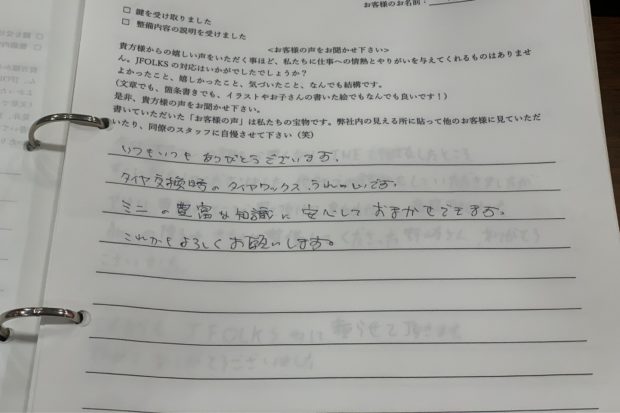 お客様のお名前：
□ 鍵を受け取りました
□ 整備内容の説明を受けました
<お客様の声をお聞かせ下さい>
貴方様からの嬉しい声をいただく事ほど、私たちに仕事への情熱とやりがいを与えてくれるものはありませ
ん。JFOLKSの対応はいかがでしたでしょうか？
よかったこと、嬉しかったこと、気づいたこと、なんでも結構です。
（文章でも、箇条書きでも、イラストやお子さんの書いた絵でもなんでも良いです！）
是非、貴方様の声をお聞かせ下さい。
書いていただいた「お客様の声」は私たちの宝物です。弊社内の見える所に貼って他のお客様に見ていただ
いたり、同僚のスタッフに自慢させて下さい（笑）
いつもいつも ありがとうございます。
タイヤ交換時の タイヤワックス うれしいです。
ミニの豊富な知識に安心して おまかせできます。
これからもよろしくお願いします。